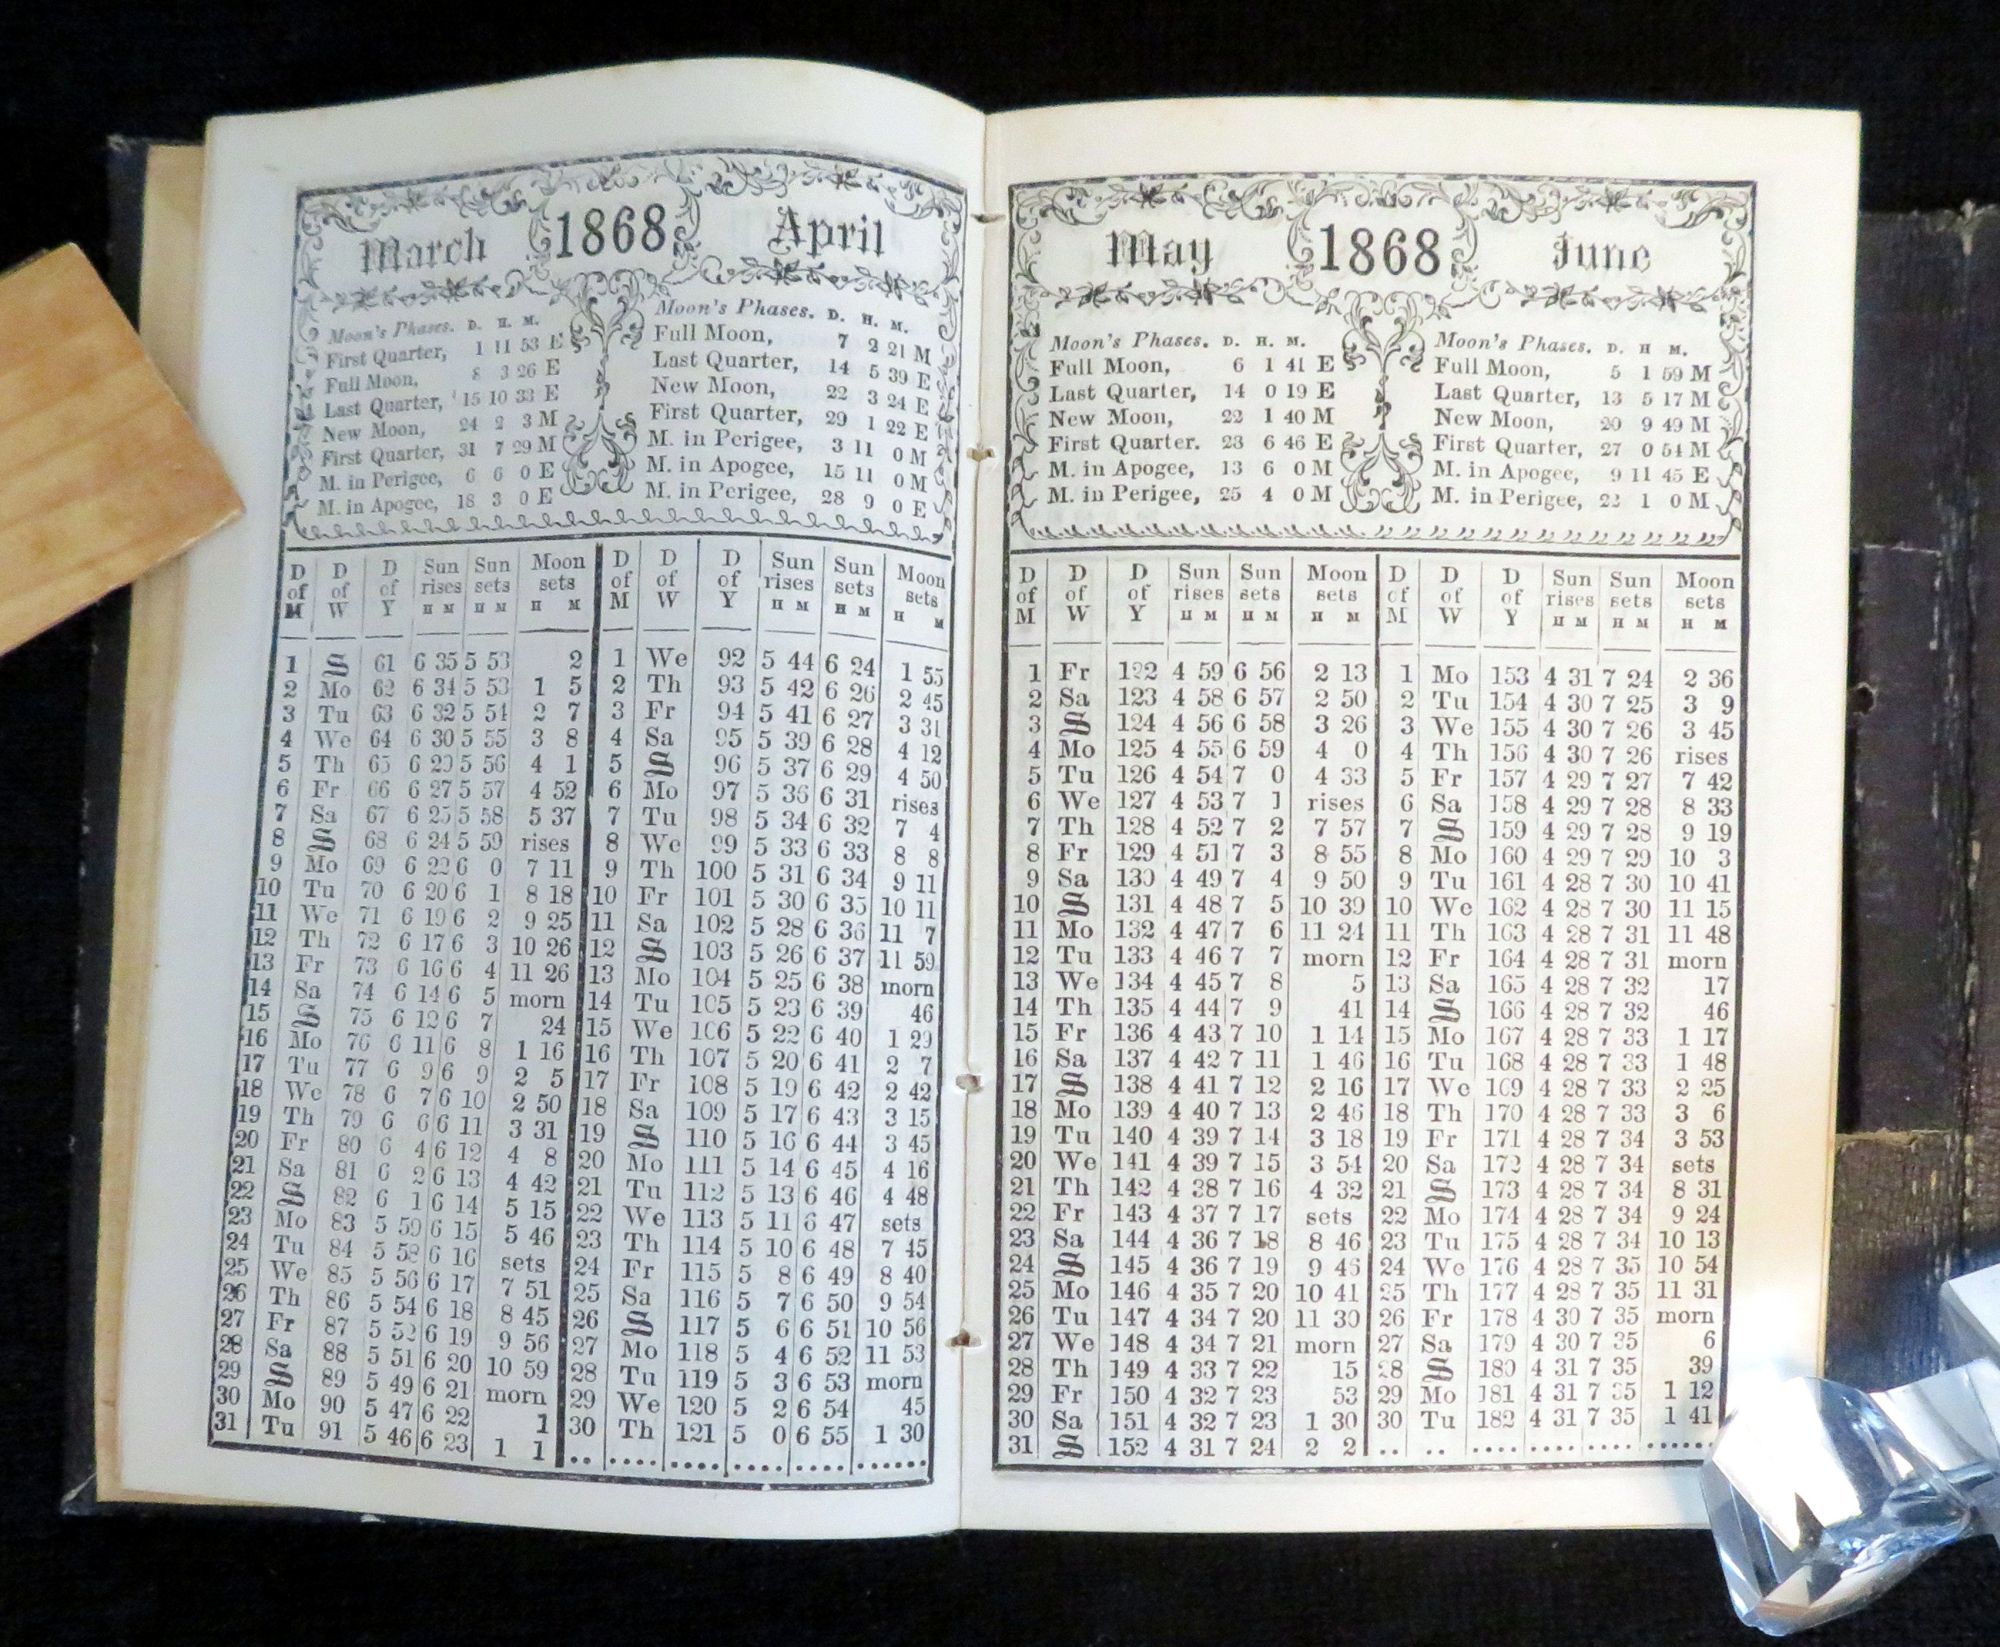 March 1868 April
Moon's Phases. D. H. M.
First Quarter, 1 11 53 E
Full Moon, 8 3 26 E
Last Quarter, 15 10 33 E
New Moon, 24 2 3 M
First Quarter, 31 7 29 M
M. in Perigee, 6 6 0 E
M. in Apogee, 18 3 0 E
Moon's Phases. D. H. M.
Full Moon, 7 2 21 M
Last Quarter, 14 5 39 E
New Moon, 22 3 24 E
First Quarter, 29 1 22 E
M. in Perigee, 3 11 0 M
M. in Apogee, 15 11 0 M
M. in Perigee, 28 9 0 E
D of M D of W D of Y Sun rises H M Sun sets H M Moon sets H M
1 S 61 6 35 5 53 2
2 Mo 62 6 34 5 53 1 5
3 Tu 63 6 32 5 54 2 7
4 We 64 6 30 5 55 3 8
5 Th 65 6 29 5 56 4 1
6 Fr 66 6 27 5 57 4 52
7 Sa 67 6 25 5 58 5 37
8 S 68 6 24 5 59 rises
9 Mo 69 6 22 6 0 7 11
10 Tu 70 6 20 6 1 8 18
11 We 71 6 19 6 2 9 25
12 Th 72 6 17 6 3 10 26
13 Fr 73 6 16 6 4 11 26
14 Sa 74 6 14 6 5 morn
15 S 75 6 12 6 7 24
16 Mo 76 6 11 6 8 1 16
17 Tu 77 6 9 6 9 2 5
18 We 78 6 7 6 10 2 50
19 Th 79 6 6 6 11 3 31
20 Fr 80 6 4 6 12 4 8
21 Sa 81 6 2 6 13 4 42
22 S 82 6 1 6 14 5 15
23 Mo 83 5 59 6 15 5 46
24 Tu 84 5 58 6 16 sets
25 We 85 5 56 6 17 7 51
26 Th 86 5 54 6 18 8 45
27 Fr 87 5 52 6 19 9 56
28 Sa 88 5 51 6 20 10 59
29 S 89 5 49 6 21 morn
30 Mo 90 5 47 6 22 1
31 Tu 91 5 46 6 23 1 1
D of M D of W D of Y Sun rises H M Sun sets H M Moon sets H M
1 We 92 5 44 6 24 1 55
2 Th 93 5 42 6 26 2 45
3 Fr 94 5 41 6 27 3 31
4 Sa 95 5 39 6 28 4 12
5 S 96 5 37 6 29 4 50
6 Mo 97 5 36 6 31 rises
7 Tu 98 5 34 6 32 7 4
8 We 99 5 33 6 33 8 8
9 Th 100 5 31 6 34 9 11
10 Fr 101 5 30 6 35 10 11
11 Sa 102 5 28 6 36 11 7
12 S 103 5 26 6 37 11 59
13 Mo 104 5 25 6 38 morn
14 Tu 105 5 23 6 39 46
15 We 106 5 22 6 40 1 29
16 Th 107 5 20 6 41 2 7
17 Fr 108 5 19 6 42 2 42
18 Sa 109 5 17 6 43 3 15
19 S 110 5 16 6 44 3 45
20 Mo 111 5 14 6 45 4 16
21 Tu 112 5 13 6 46 4 48
22 We 113 5 11 6 47 sets
23 Th 114 5 10 6 48 7 45
24 Fr 115 5 8 6 49 8 40
25 Sa 116 5 7 6 50 9 54
26 S 117 5 6 6 51 10 56
27 Mo 118 5 4 6 52 11 53
28 Tu 119 5 3 6 53 morn
29 We 120 5 2 6 54 45
30 Th 121 5 0 6 55 1 30
May 1868 June
Moon's Phases. D. H. M.
Full Moon, 6 1 41 E
Last Quarter, 14 0 19 E
New Moon, 22 1 40 M
First Quarter. 28 6 46 E
M. in Apogee, 13 6 0 M
M. in Perigee, 25 4 0 M
Moon's Phases. D. H M.
Full Moon, 5 1 59 M
Last Quarter, 13 5 17 M
New Moon, 20 9 49 M
First Quarter, 27 0 54 M
M. in Apogee, 9 11 45 E
M. in Perigee, 22 1 0 M
D of M D of W D of Y Sun rises H M Sun sets H M Moon sets H M
1 Fr 122 4 59 6 56 2 13
2 Sa 123 4 58 6 57 2 50
3 S 124 4 56 6 58 3 26
4 Mo 125 4 55 6 59 4 0
5 Tu 126 4 54 7 0 4 33
6 We 127 4 53 7 1 rises
7 Th 128 4 52 7 2 7 57
8 Fr 129 4 51 7 3 8 55
9 Sa 130 4 49 7 4 9 50
10 S 131 4 48 7 5 10 39
11 Mo 132 4 47 7 6 11 24
12 Tu 133 4 46 7 7 morn
13 We 134 4 45 7 8 5
14 Th 135 4 44 7 9 41
15 Fr 136 4 43 7 10 1 14
16 Sa 137 4 42 7 11 1 46
17 S 138 4 41 7 12 2 16
18 Mo 139 4 40 7 13 2 46
19 Tu 140 4 39 7 14 3 18
20 We 141 4 39 7 15 3 54
21 Th 142 4 38 7 16 4 32
22 Fr 143 4 37 7 17 sets
23 Sa 144 4 36 7 18 8 46
24 S 145 4 36 7 19 9 46
25 Mo 146 4 35 7 20 10 41
26 Tu 147 4 34 7 20 11 30
27 We 148 4 34 7 21 morn
28 Th 149 4 33 7 22 15
29 Fr 150 4 32 7 23 53
30 Sa 151 4 32 7 23 1 30
31 S 152 4 31 7 24 2 2
D of M D of W D of Y Sun rises H M Sun sets H M Moon sets H M
1 Mo 153 4 31 7 24 2 36
2 Tu 154 4 30 7 25 3 9
3 We 155 4 30 7 26 3 45
4 Th 156 4 30 7 26 rises
5 Fr 157 4 29 7 27 7 42
6 Sa 158 4 29 7 28 8 33
7 S 159 4 29 7 28 9 19
8 Mo 160 4 29 7 29 10 3
9 Tu 161 4 28 7 30 10 41
10 We 162 4 28 7 30 11 15
11 Th 163 4 28 7 31 11 48
12 Fr 164 4 28 7 31 morn
13 Sa 165 4 28 7 32 17
14 S 166 4 28 7 32 46
15 Mo 167 4 28 7 33 1 17
16 Tu 168 4 28 7 33 1 48
17 We 169 4 28 7 33 2 25
18 Th 170 4 28 7 33 3 6
19 Fr 171 4 28 7 34 3 53
20 Sa 172 4 28 7 34 sets
21 S 173 4 28 7 34 8 31
22 Mo 174 4 28 7 34 9 24
23 Tu 175 4 28 7 34 10 13
24 We 176 4 28 7 35 10 54
25 Th 177 4 28 7 35 11 31
26 Fr 178 4 30 7 35 morn
27 Sa 179 4 30 7 35 6
28 S 180 4 31 7 35 39
29 Mo 181 4 31 7 35 1 12
30 Tu 182 4 31 7 35 1 41